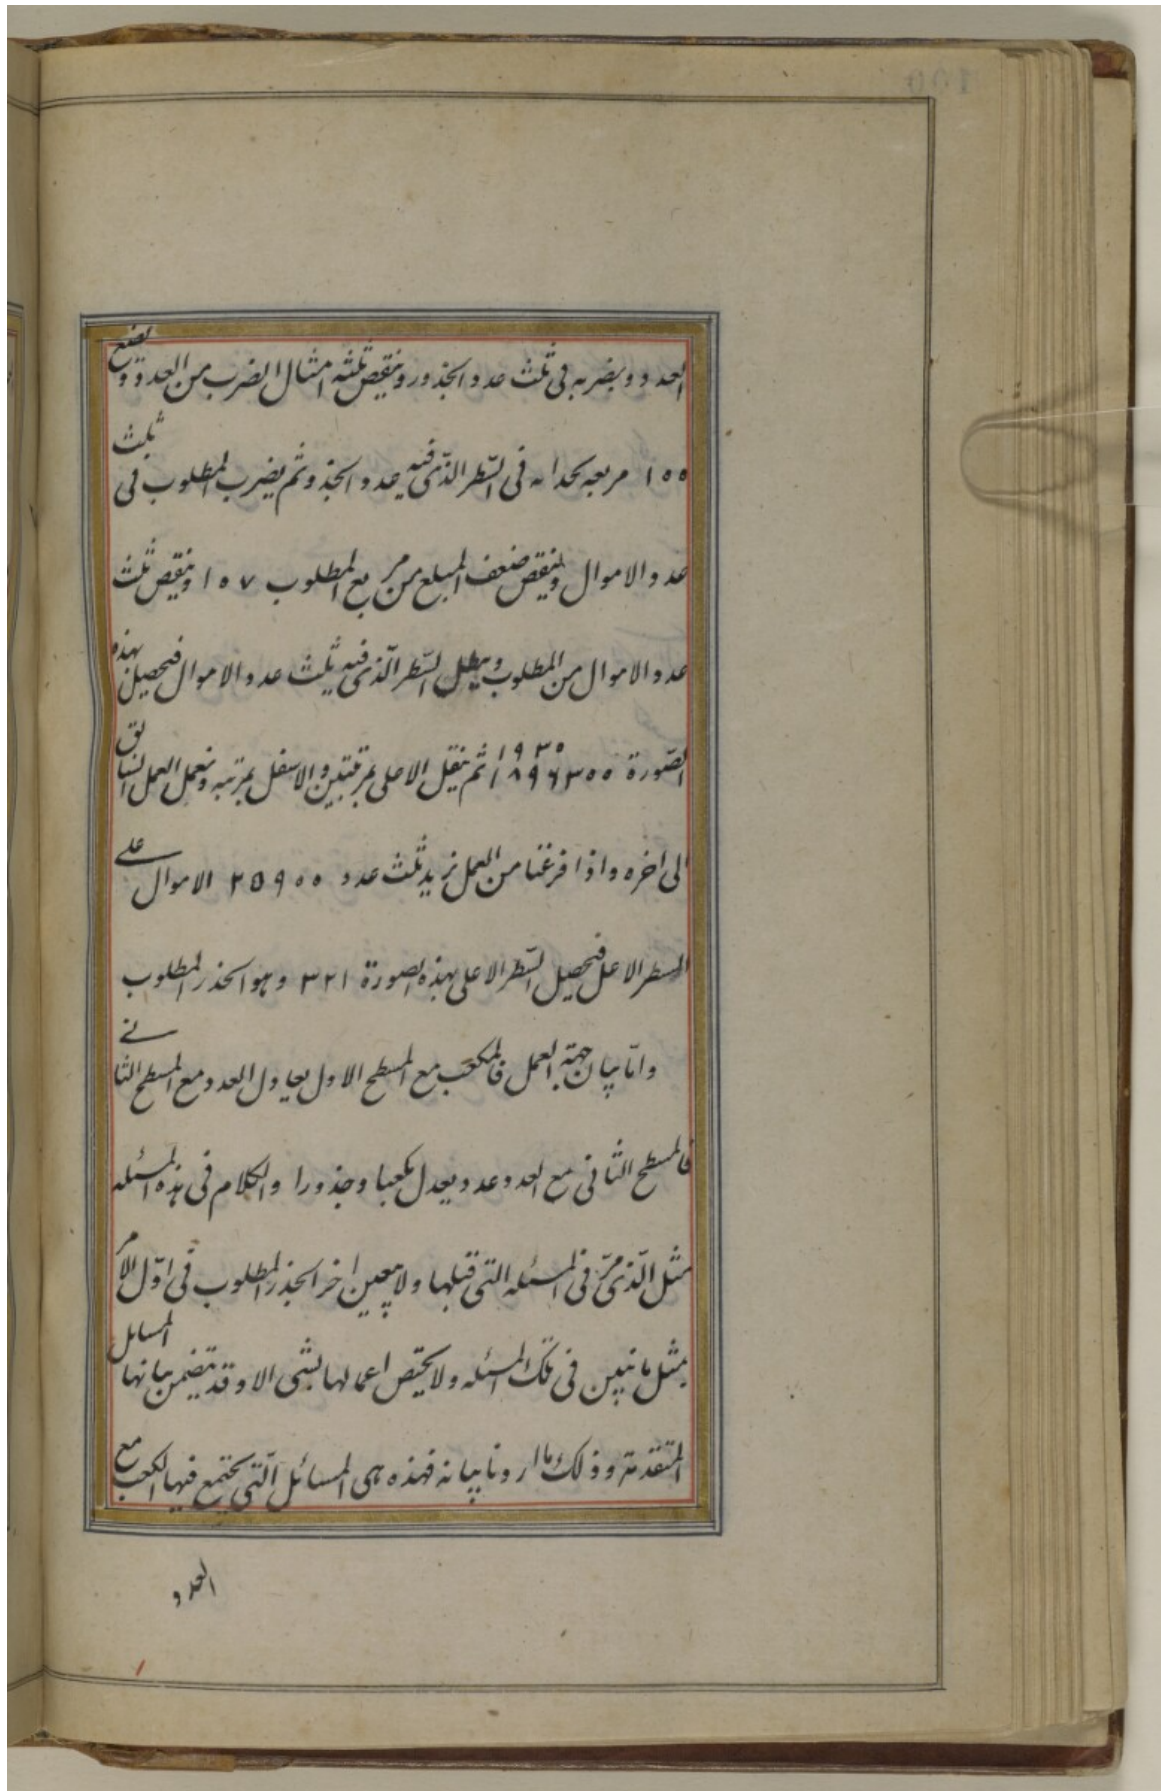 العدد ويضربه فى ثلث عدد الجذور وينقص ثلثه امثال الضرب من العدد ويضع
١٥٥ مربعه بحذائه فى السّطر الذّى فيه عدد الجذو ثم يضرب المطلوب فى ثلث
عدد الاموال وينقص ضعف المبلع من مربع المطلوب ١٥٧ وينقص ثلث
عدد الاموال من المطلوب ويبطل السّطر الّذى فيه ثلث عدد الاموال فيحصل بهذه
الصّورة ١٩٣٥ ١٨٩٦٣٥٥ ثم ينقل الاعلى بمرتبتين والاسفل بمرتبه ونعمل العمل السابق
الى اخره واذا فرغنا من العمل نزيد ثلث عدد ٢٥٩٥٥ الاموال على
السطر الاعلى فيحصل السّطر الاعلى بهذه الصورة ٣٢١ وهو الجذر المطلوب
وامّا بيان جهته العمل فالمكعب مع المسطح الاول يعادل العدد مع المسطح الثانى
فالمسطح الثانى مع العدد عدد يعدل مكعبا وجذورا والكلام فى هذه المسئله
مثل الّذى مرّ فى المسئله التى قبلها ولا يتعين اخر الجذر المطلوب فى اوّل الامر
بمثل ما تبين فى تلك المسئله ولا يختص اعمالها بشى الا وقد تضمن بيانها المسائل
المتقدمة وذلك ما اردنا بيانه فهذه هى المسائل الّتى يجتمع فيها الكعب مع
العدد